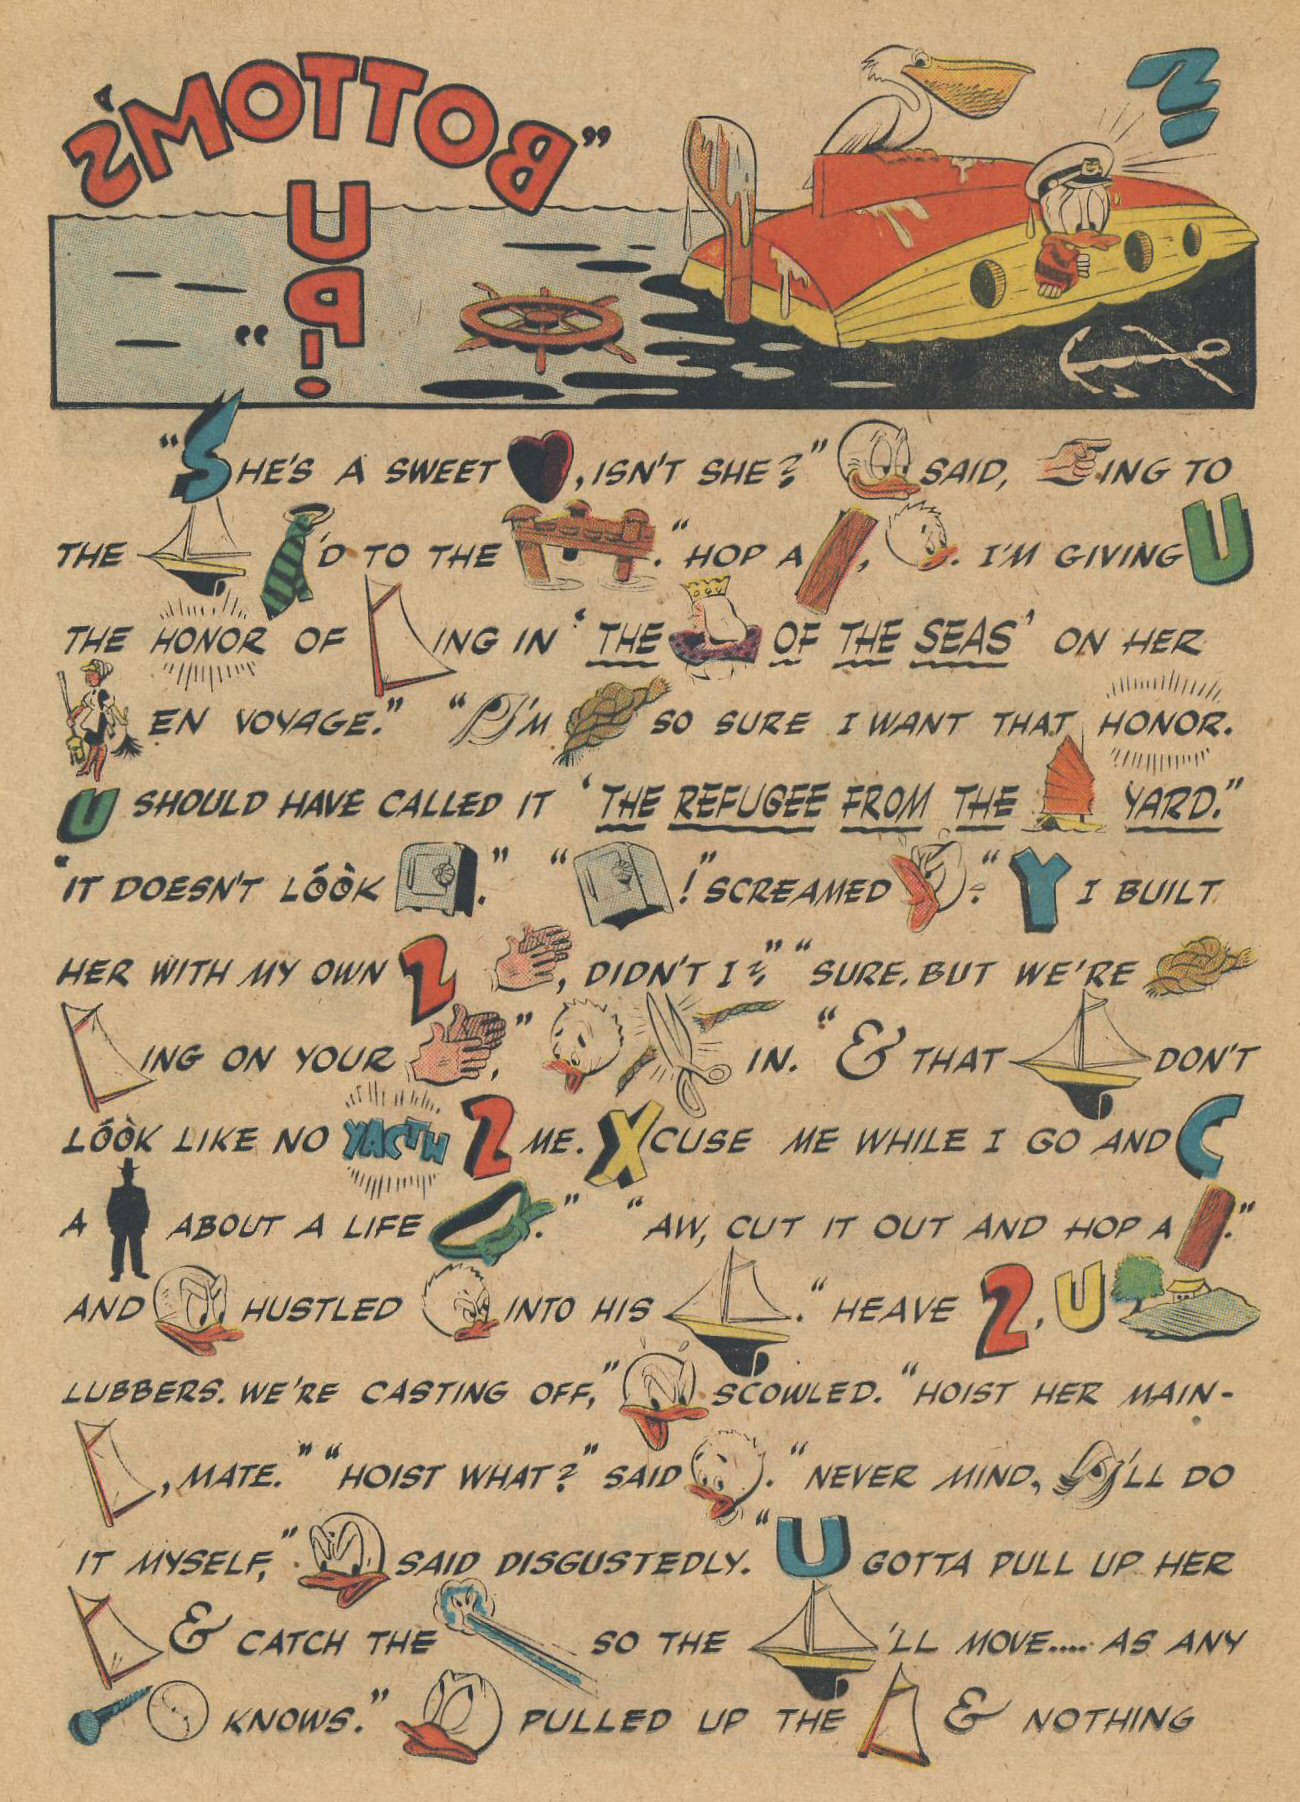 "BOTTOM'S
UP!"
?
"SHE'S A SWEET , ISN'T SHE?" SAID, ING TO
THE 'D TO THE . "HOP A , . I'M GIVING U
THE HONOR OF ING IN 'THE OF THE SEAS' ON HER
EN VOYAGE." "'M SO SURE I WANT THAT HONOR.
U SHOULD HAVE CALLED IT 'THE REFUGEE FROM THE YARD."
"IT DOESN'T LOOK ." " !" SCREAMED . "Y I BUILT
HER WITH MY OWN 2 , DIDN'T I?" "SURE. BUT WE'RE
ING ON YOUR ," IN. "& THAT DON'T
LOOK LIKE NO YACTH 2 ME. XCUSE ME WHILE I GO AND C
A ABOUT A LIFE ." "AW, CUT IT OUT AND HOP A ."
AND HUSTLED INTO HIS . "HEAVE 2, U
LUBBERS. WE'RE CASTING OFF," SCOWLED. "HOIST HER MAIN-
, MATE." "HOIST WHAT?" SAID . "NEVER MIND, 'LL DO
IT MYSELF," SAID DISGUSTEDLY. "U GOTTA PULL UP HER
& CATCH THE SO THE 'LL MOVE.... AS ANY
KNOWS." PULLED UP THE & NOTHING